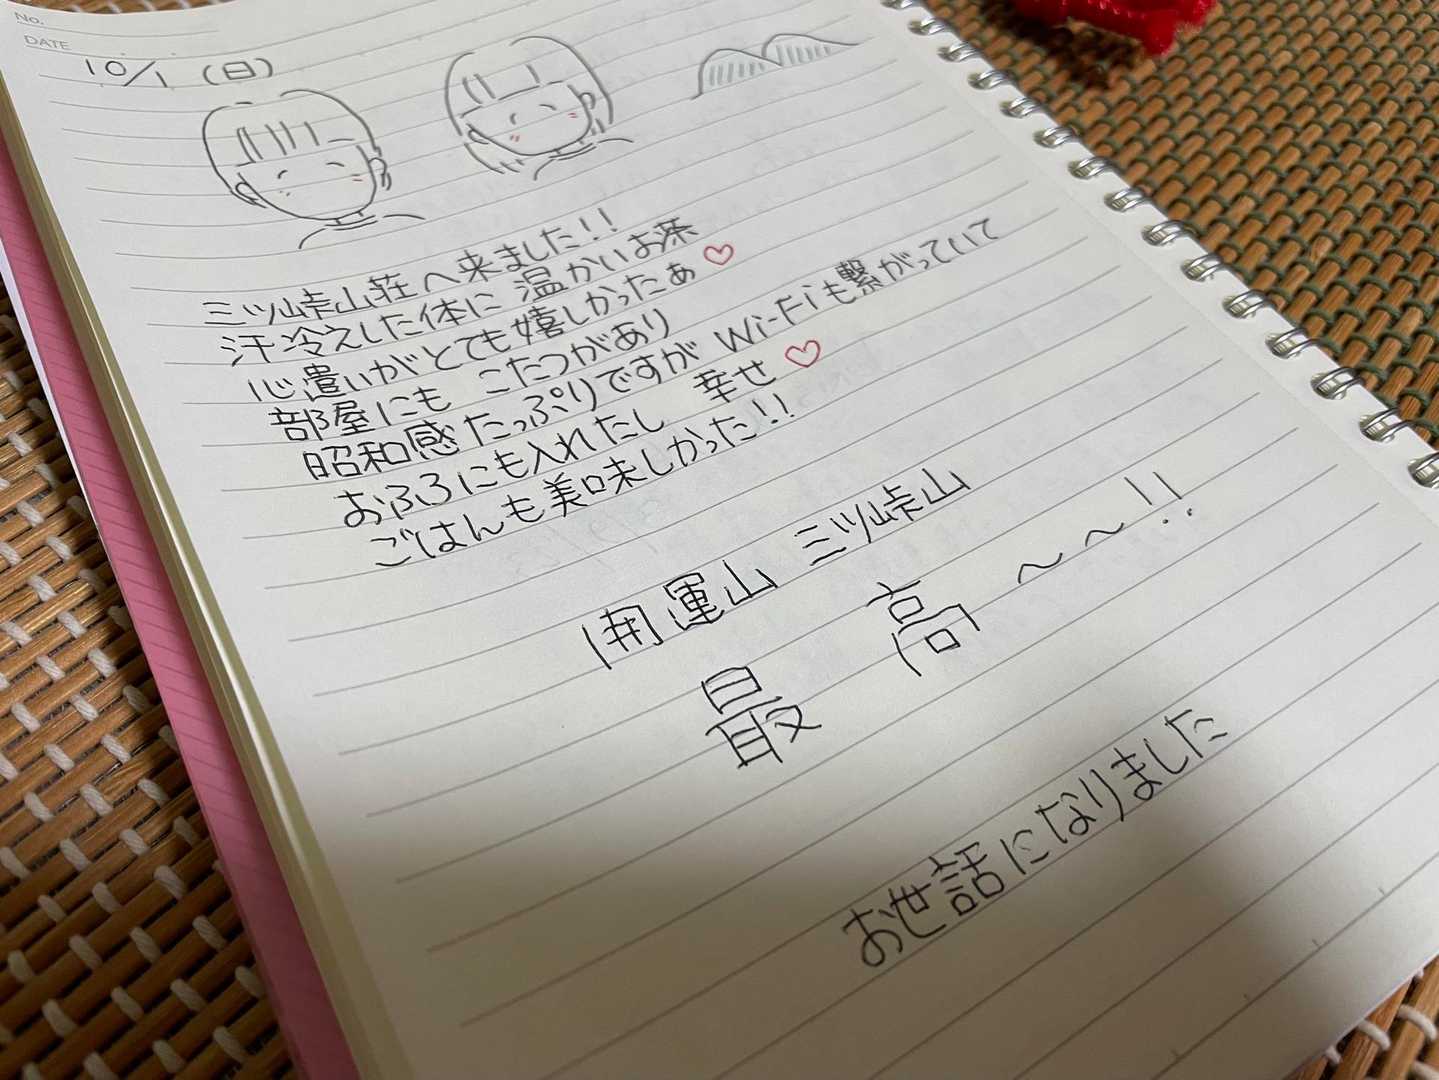 No.
DATE
10/1 (日)
三ツ峠山荘へ来ました!!
汗冷えした体に 温かいお茶
心遣いがとても嬉しかったぁ♡
部屋にも こたつがあり
昭和感たっぷりですが Wi-Fiも繋がっていて
おふろにも入れたし 幸せ♡
ごはんも美味しかった!!
開運山 三ツ峠山
最 高 〜〜!!
お世話になりました